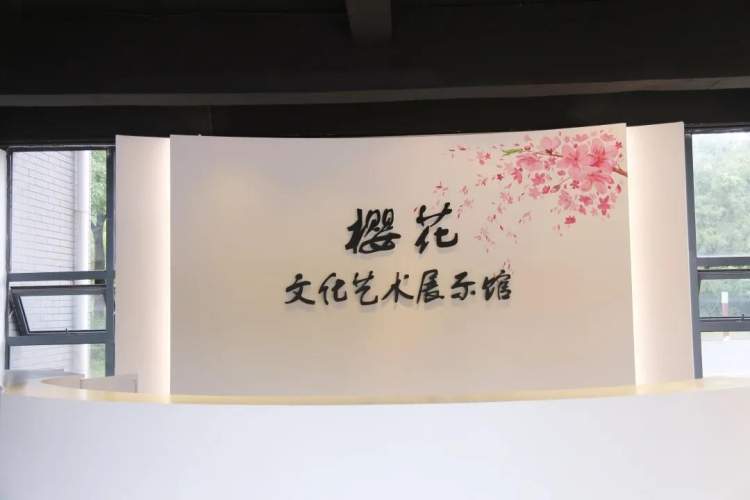 樱花
文化艺术展示馆